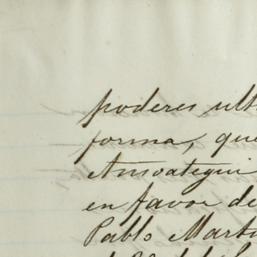 poderes ult
forma, que
Ansoategui
en favor de
Pablo Mart